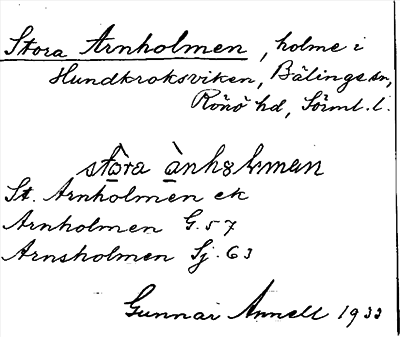 Stora Arnholmen, holme i
Hundkroksviken, Bälinge sn,
Rönö hd, Sörml. l.
stòra ànhɷlman
St. Arnholmen ek
Arnholmen G. 57
Arnsholmen Sj. 63
Gunnar Annell 1933